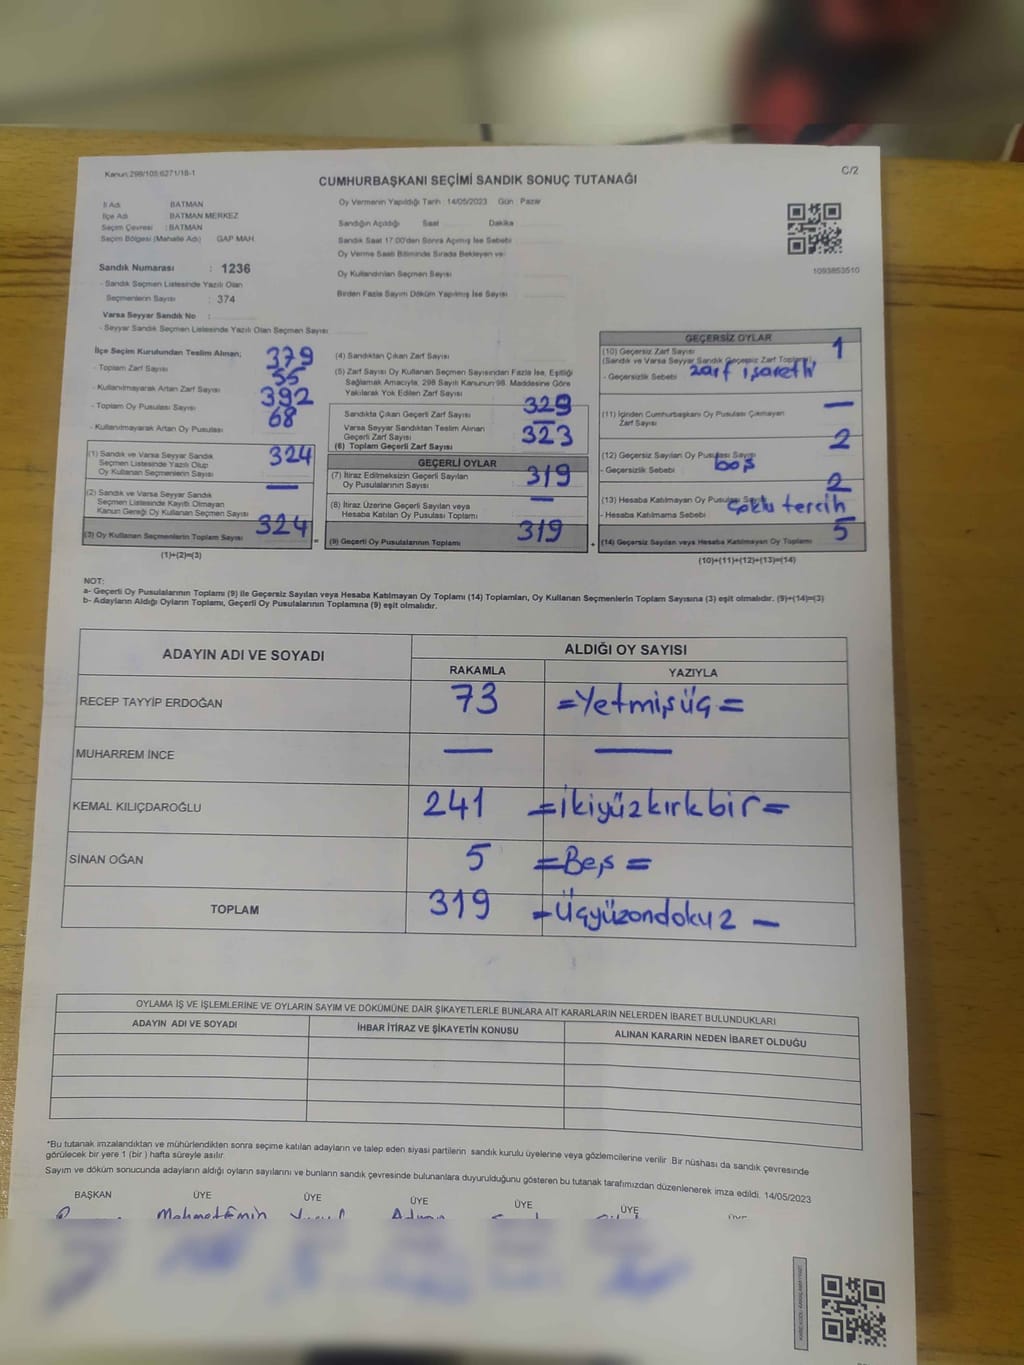 Kanun:298/105;6271/18-1
C/2
CUMHURBAŞKANI SEÇİMİ SANDIK SONUÇ TUTANAĞI
İl Adı BATMAN
İlçe Adı BATMAN MERKEZ
Seçim Çevresi : BATMAN
Seçim Bölgesi (Mahalle Adı) GAP MAH.
Sandık Numarası : 1236
- Sandık Seçmen Listesinde Yazılı Olan
Seçmenlerin Sayısı : 374
Varsa Seyyar Sandık No :
- Seyyar Sandık Seçmen Listesinde Yazılı Olan Seçmen Sayısı
Oy Vermenin Yapıldığı Tarih : 14/05/2023 Gün : Pazar
Sandığın Açıldığı Saat Dakika
Sandık Saat 17:00'den Sonra Açılmış İse Sebebi
Oy Verme Saati Bitiminde Sırada Bekleyen ve
Oy Kullandırılan Seçmen Sayısı
Birden Fazla Sayım Döküm Yapılmış İse Sayısı
1093853510
İlçe Seçim Kurulundan Teslim Alınan;
- Toplam Zarf Sayısı 379
- Kullanılmayarak Artan Zarf Sayısı 55
- Toplam Oy Pusulası Sayısı 392
- Kullanılmayarak Artan Oy Pusulası 68
(1) Sandık ve Varsa Seyyar Sandık
Seçmen Listesinde Yazılı Olup
Oy Kullanan Seçmenlerin Sayısı 324
(2) Sandık ve Varsa Seyyar Sandık
Seçmen Listesinde Kayıtlı Olmayan
Kanun Gereği Oy Kullanan Seçmen Sayısı —
(3) Oy Kullanan Seçmenlerin Toplam Sayısı 324
(1)+(2)=(3)
(4) Sandıktan Çıkan Zarf Sayısı
(5) Zarf Sayısı Oy Kullanan Seçmen Sayısından Fazla İse, Eşitliği
Sağlamak Amacıyla, 298 Sayılı Kanunun 98. Maddesine Göre
Yakılarak Yok Edilen Zarf Sayısı
Sandıkta Çıkan Geçerli Zarf Sayısı 329
Varsa Seyyar Sandıktan Teslim Alınan
Geçerli Zarf Sayısı —
(6) Toplam Geçerli Zarf Sayısı 323
GEÇERLİ OYLAR
(7) İtiraz Edilmeksizin Geçerli Sayılan
Oy Pusulalarının Sayısı 319
(8) İtiraz Üzerine Geçerli Sayılan veya
Hesaba Katılan Oy Pusulası Toplamı —
(9) Geçerli Oy Pusulalarının Toplamı 319
GEÇERSİZ OYLAR
(10) Geçersiz Zarf Sayısı 1
(Sandık ve Varsa Seyyar Sandık Geçersiz Zarf Toplamı)
- Geçersizlik Sebebi zarf işaretli
(11) İçinden Cumhurbaşkanı Oy Pusulası Çıkmayan
Zarf Sayısı —
(12) Geçersiz Sayılan Oy Pusulası Sayısı 2
- Geçersizlik Sebebi boş
(13) Hesaba Katılmayan Oy Pusulası Sayısı 2
- Hesaba Katılmama Sebebi çoklu tercih
(14) Geçersiz Sayılan veya Hesaba Katılmayan Oy Toplamı 5
(10)+(11)+(12)+(13)=(14)
NOT:
a- Geçerli Oy Pusulalarının Toplamı (9) ile Geçersiz Sayılan veya Hesaba Katılmayan Oy Toplamı (14) Toplamları, Oy Kullanan Seçmenlerin Toplam Sayısına (3) eşit olmalıdır. (9)+(14)=(3)
b- Adayların Aldığı Oyların Toplamı, Geçerli Oy Pusulalarının Toplamına (9) eşit olmalıdır.
ADAYIN ADI VE SOYADI ALDIĞI OY SAYISI
RAKAMLA YAZIYLA
RECEP TAYYİP ERDOĞAN 73 =Yetmişüç=
MUHARREM İNCE — —
KEMAL KILIÇDAROĞLU 241 =ikiyüzkırkbir=
SİNAN OĞAN 5 =Beş=
TOPLAM 319 -Üçyüzondokuz -
OYLAMA İŞ VE İŞLEMLERİNE VE OYLARIN SAYIM VE DÖKÜMÜNE DAİR ŞİKAYETLERLE BUNLARA AİT KARARLARIN NELERDEN İBARET BULUNDUKLARI
ADAYIN ADI VE SOYADI İHBAR İTİRAZ VE ŞİKAYETİN KONUSU ALINAN KARARIN NEDEN İBARET OLDUĞU
*Bu tutanak imzalandıktan ve mühürlendikten sonra seçime katılan adayların ve talep eden siyasi partilerin sandık kurulu üyelerine veya gözlemcilerine verilir. Bir nüshası da sandık çevresinde
görülecek bir yere 1 (bir ) hafta süreyle asılır.
Sayım ve döküm sonucunda adayların aldığı oyların sayılarını ve bunların sandık çevresinde bulunanlara duyurulduğunu gösteren bu tutanak tarafımızdan düzenlenerek imza edildi. 14/05/2023
BAŞKAN ÜYE ÜYE ÜYE ÜYE ÜYE ÜYE
Mehmet Emin